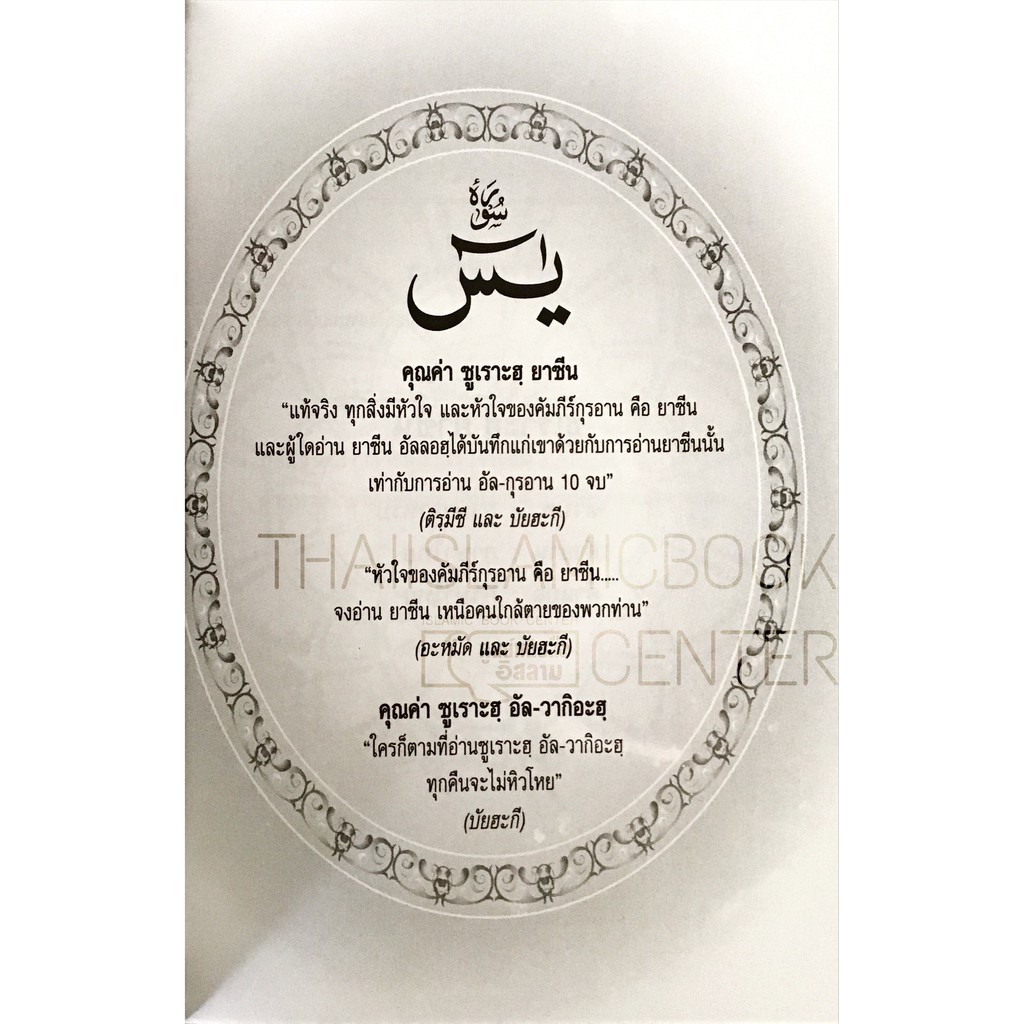 سُورَةُ
يٰسٓ
คุณค่า ซูเราะฮฺ ยาซีน
“แท้จริง ทุกสิ่งมีหัวใจ และหัวใจของคัมภีร์กุรอาน คือ ยาซีน
และผู้ใดอ่าน ยาซีน อัลลอฮฺได้บันทึกแก่เขาด้วยกับการอ่านยาซีนนั้น
เท่ากับการอ่าน อัล-กุรอาน 10 จบ”
(ติรฺมีซี และ บัยฮะกี)
THAIISLAMICBOOK
“หัวใจของคัมภีร์กุรอาน คือ ยาซีน.....
จงอ่าน ยาซีน เหนือคนใกล้ตายของพวกท่าน”
ISLAMIC BOOK CENTER
(อะหมัด และ บัยฮะกี)
อิสลาม
CENTER
คุณค่า ซูเราะฮฺ อัล-วากิอะฮฺ
“ใครก็ตามที่อ่านซูเราะฮฺ อัล-วากิอะฮฺ
ทุกคืนจะไม่หิวโหย”
(บัยฮะกี)